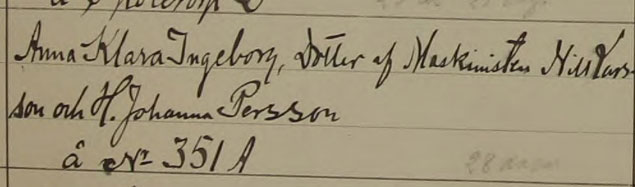 Anna Klara Ingeborg, Dotter af Maskinisten Nils Lars-
son och H. Johanna Persson
å No 351 A